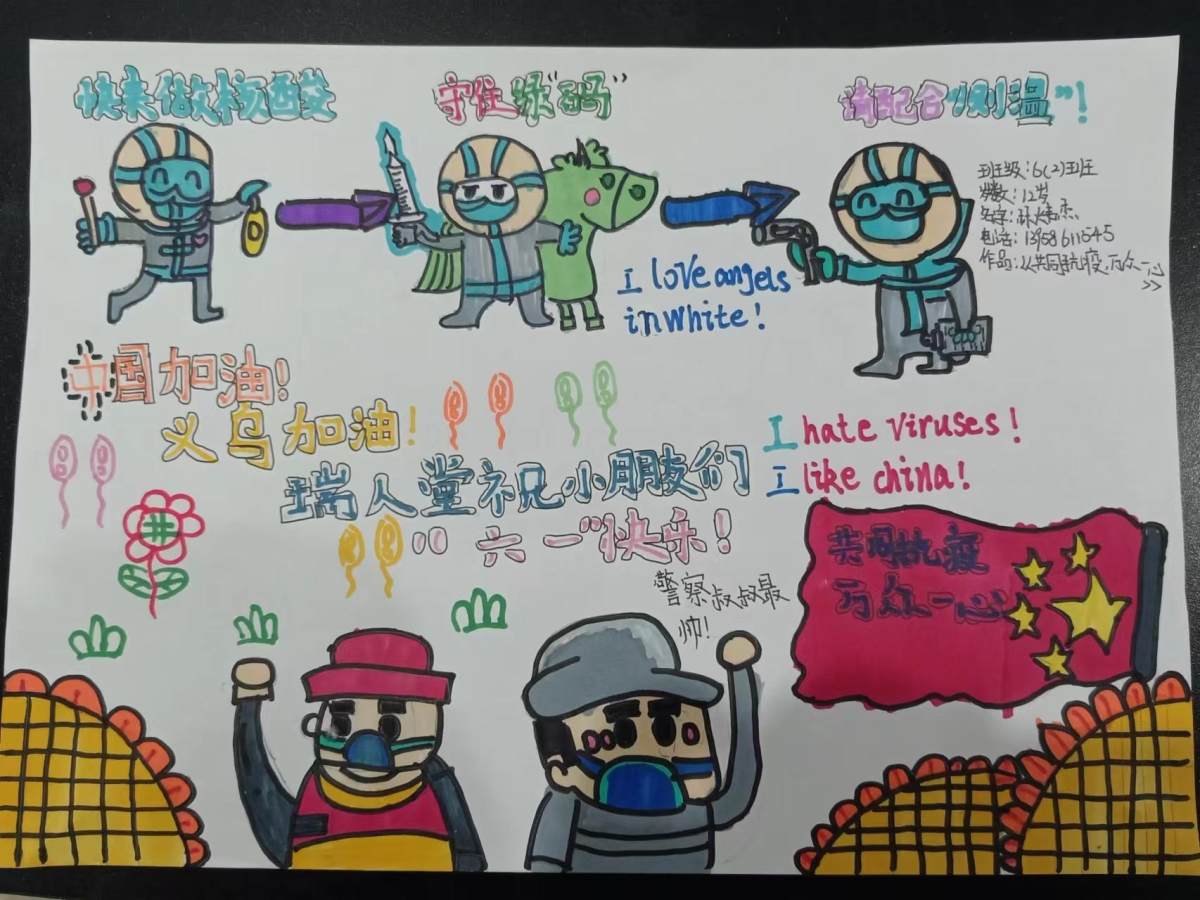 快来做核酸
守住绿"码"
请配合"测温"!
班级:6(2)班
岁数:12岁
名字:林
电话:13958611545
作品:《共同抗疫,万众一心
>>
I love angels
in white!
中国加油!
义乌加油!
I hate viruses!
I like china!
瑞人堂祝小朋友们
"六一"快乐!
共同抗疫
万众一心
警察叔叔最
帅!